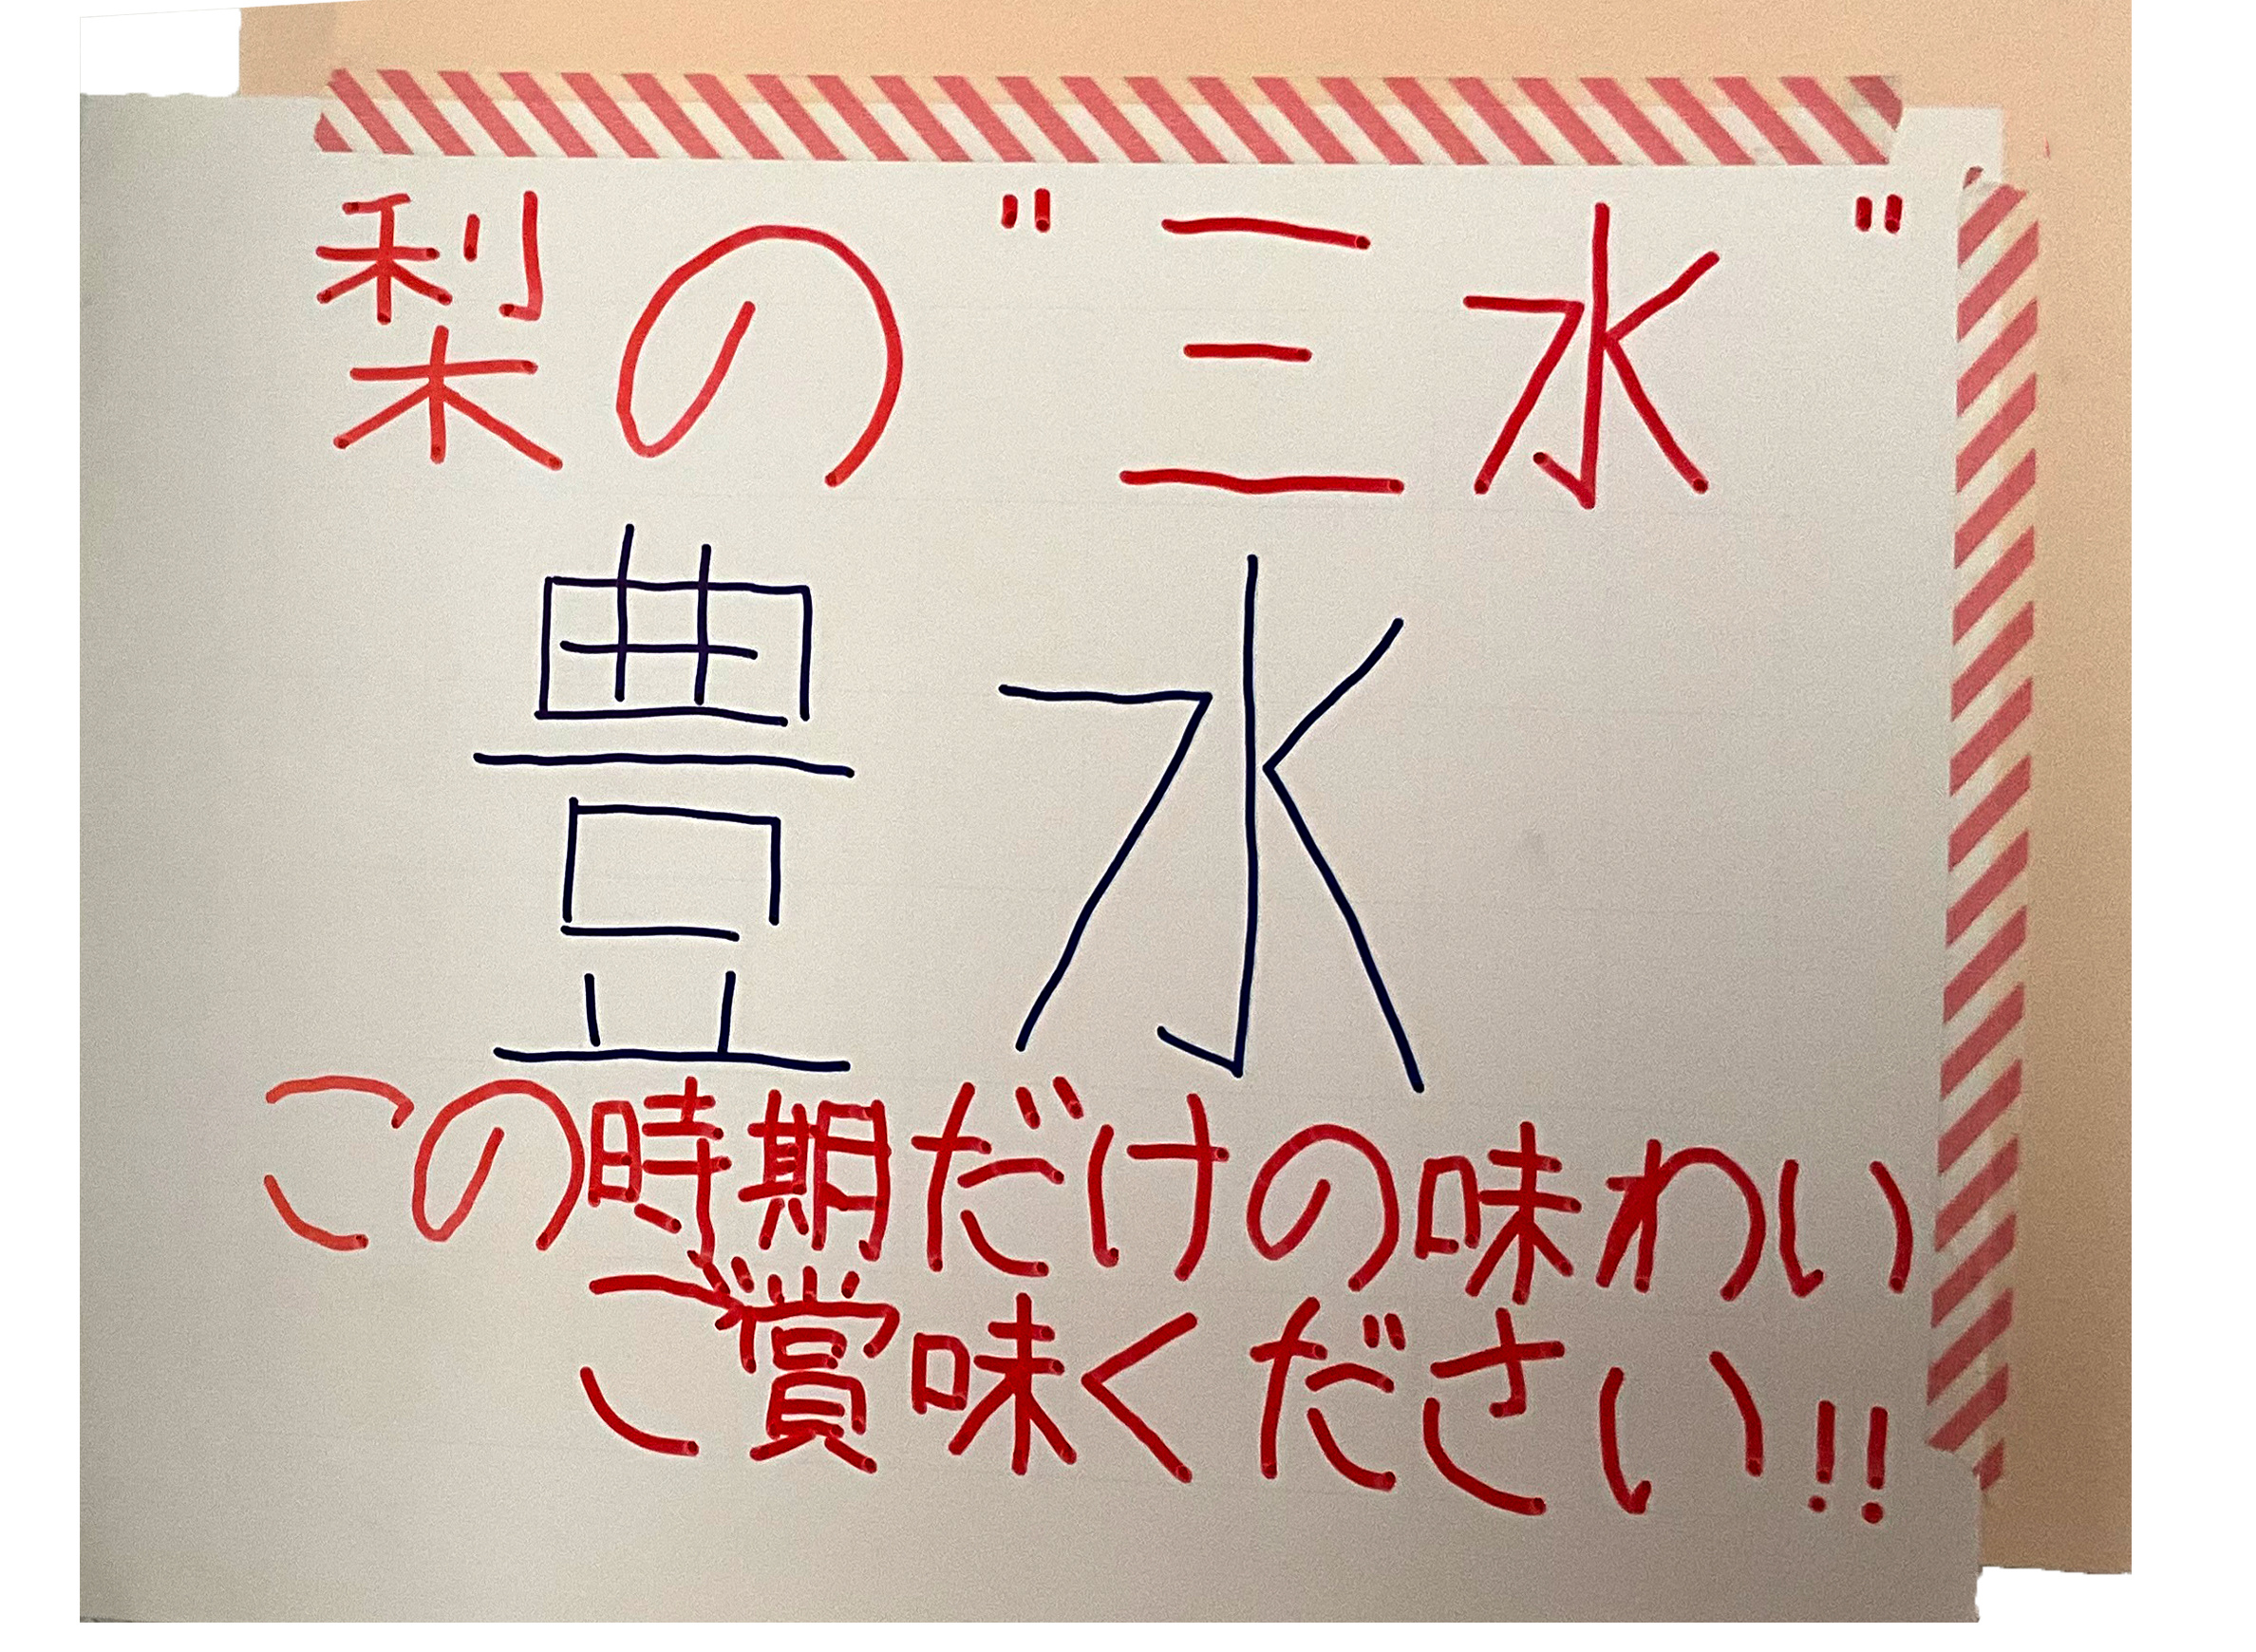 梨の"三水"
豊水
この時期だけの味わい
ご賞味ください!!